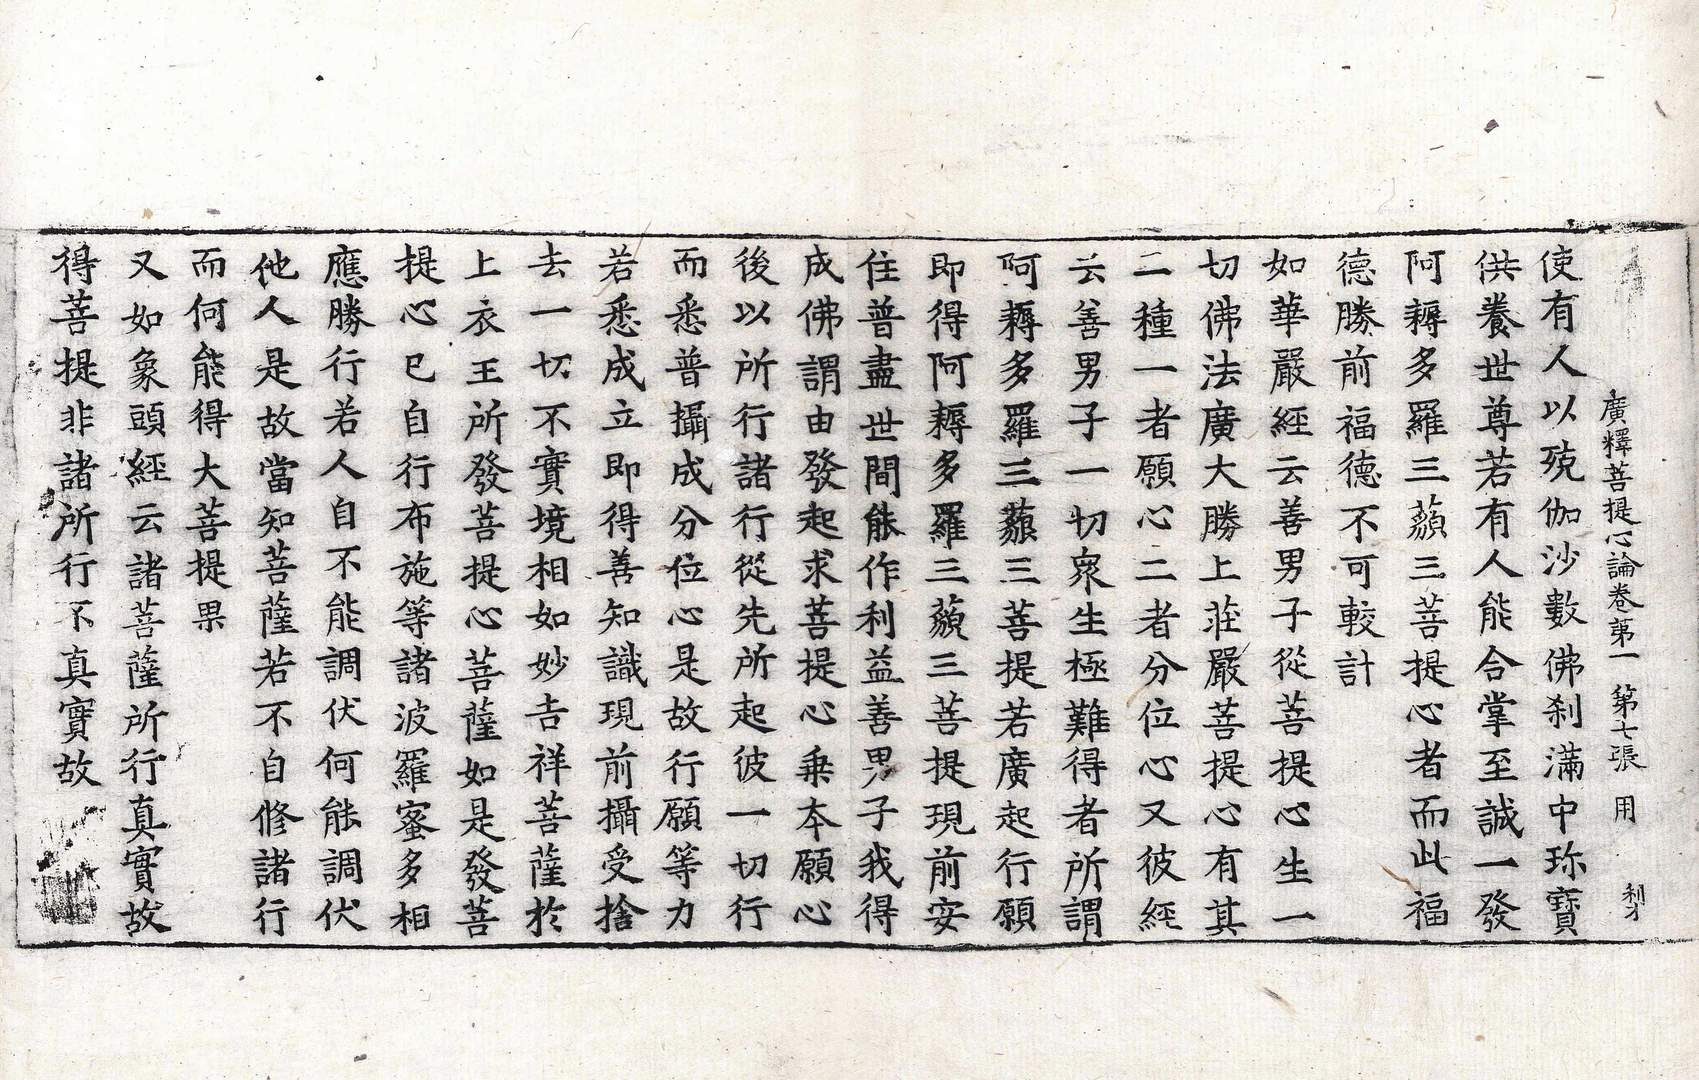 廣釋菩提心論卷第一 第七張 用 利才
使有人以殑伽沙數佛刹滿中珎寶
供養世尊若有人能合掌至誠一發
阿耨多羅三藐三菩提心者而此福
德勝前福德不可較計
如華嚴經云善男子從菩提心生一
切佛法廣大勝上莊嚴菩提心有其
二種一者願心二者分位心又彼經
云善男子一切衆生極難得者所謂
阿耨多羅三藐三菩提若廣起行願
即得阿耨多羅三藐三菩提現前安
住普盡世間能作利益善男子我得
成佛謂由發起求菩提心乗本願心
後以所行諸行從先所起彼一切行
而悉普攝成分位心是故行願等力
若悉成立即得善知識現前攝受捨
去一切不實境相如妙吉祥菩薩於
上衣王所發菩提心菩薩如是發菩
提心已自行布施等諸波羅蜜多相
應勝行若人自不能調伏何能調伏
他人是故當知菩薩若不自修諸行
而何能得大菩提果
又如象頭經云諸菩薩所行真實故
得菩提非諸所行不真實故